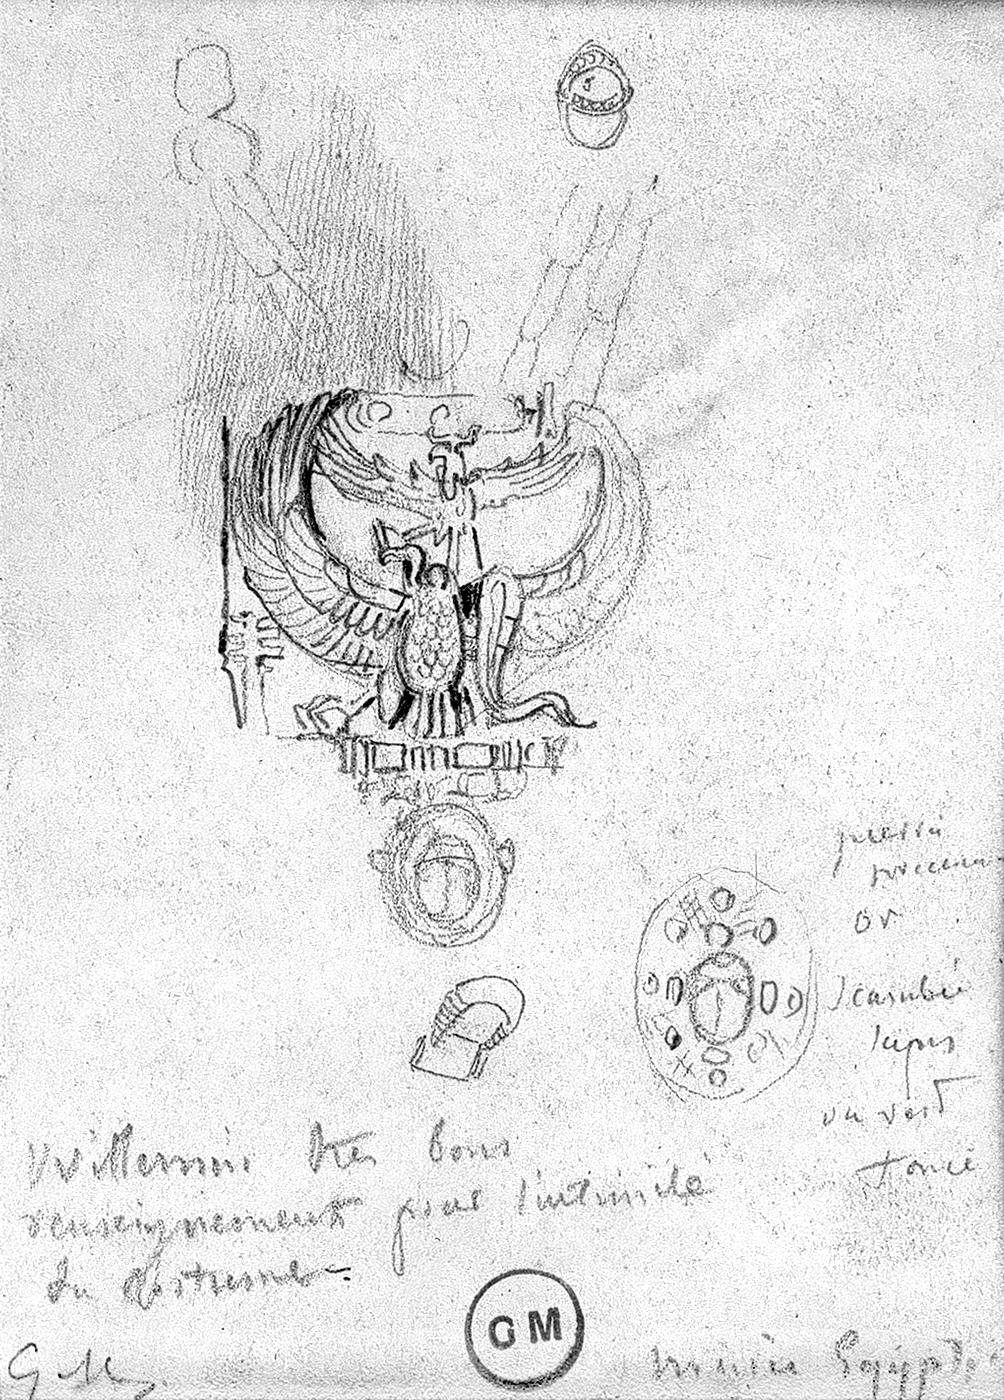 or
Scarabée
lapis
ou vert
foncé
Willemin très bons
renseignements pour l'intimité
du costume
G M
GM
musée Egypte